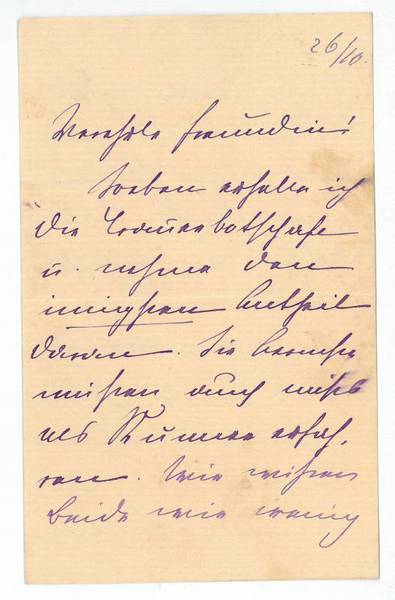 26/10.
Verehrte Freundin!
Soeben erhalte ich
die Trauerbotschaft
u. nehme den
innigsten Antheil
daran. Sie
müssen auch nichts
als Kummer erfah-
ren. Wir wissen
beide wie wenig